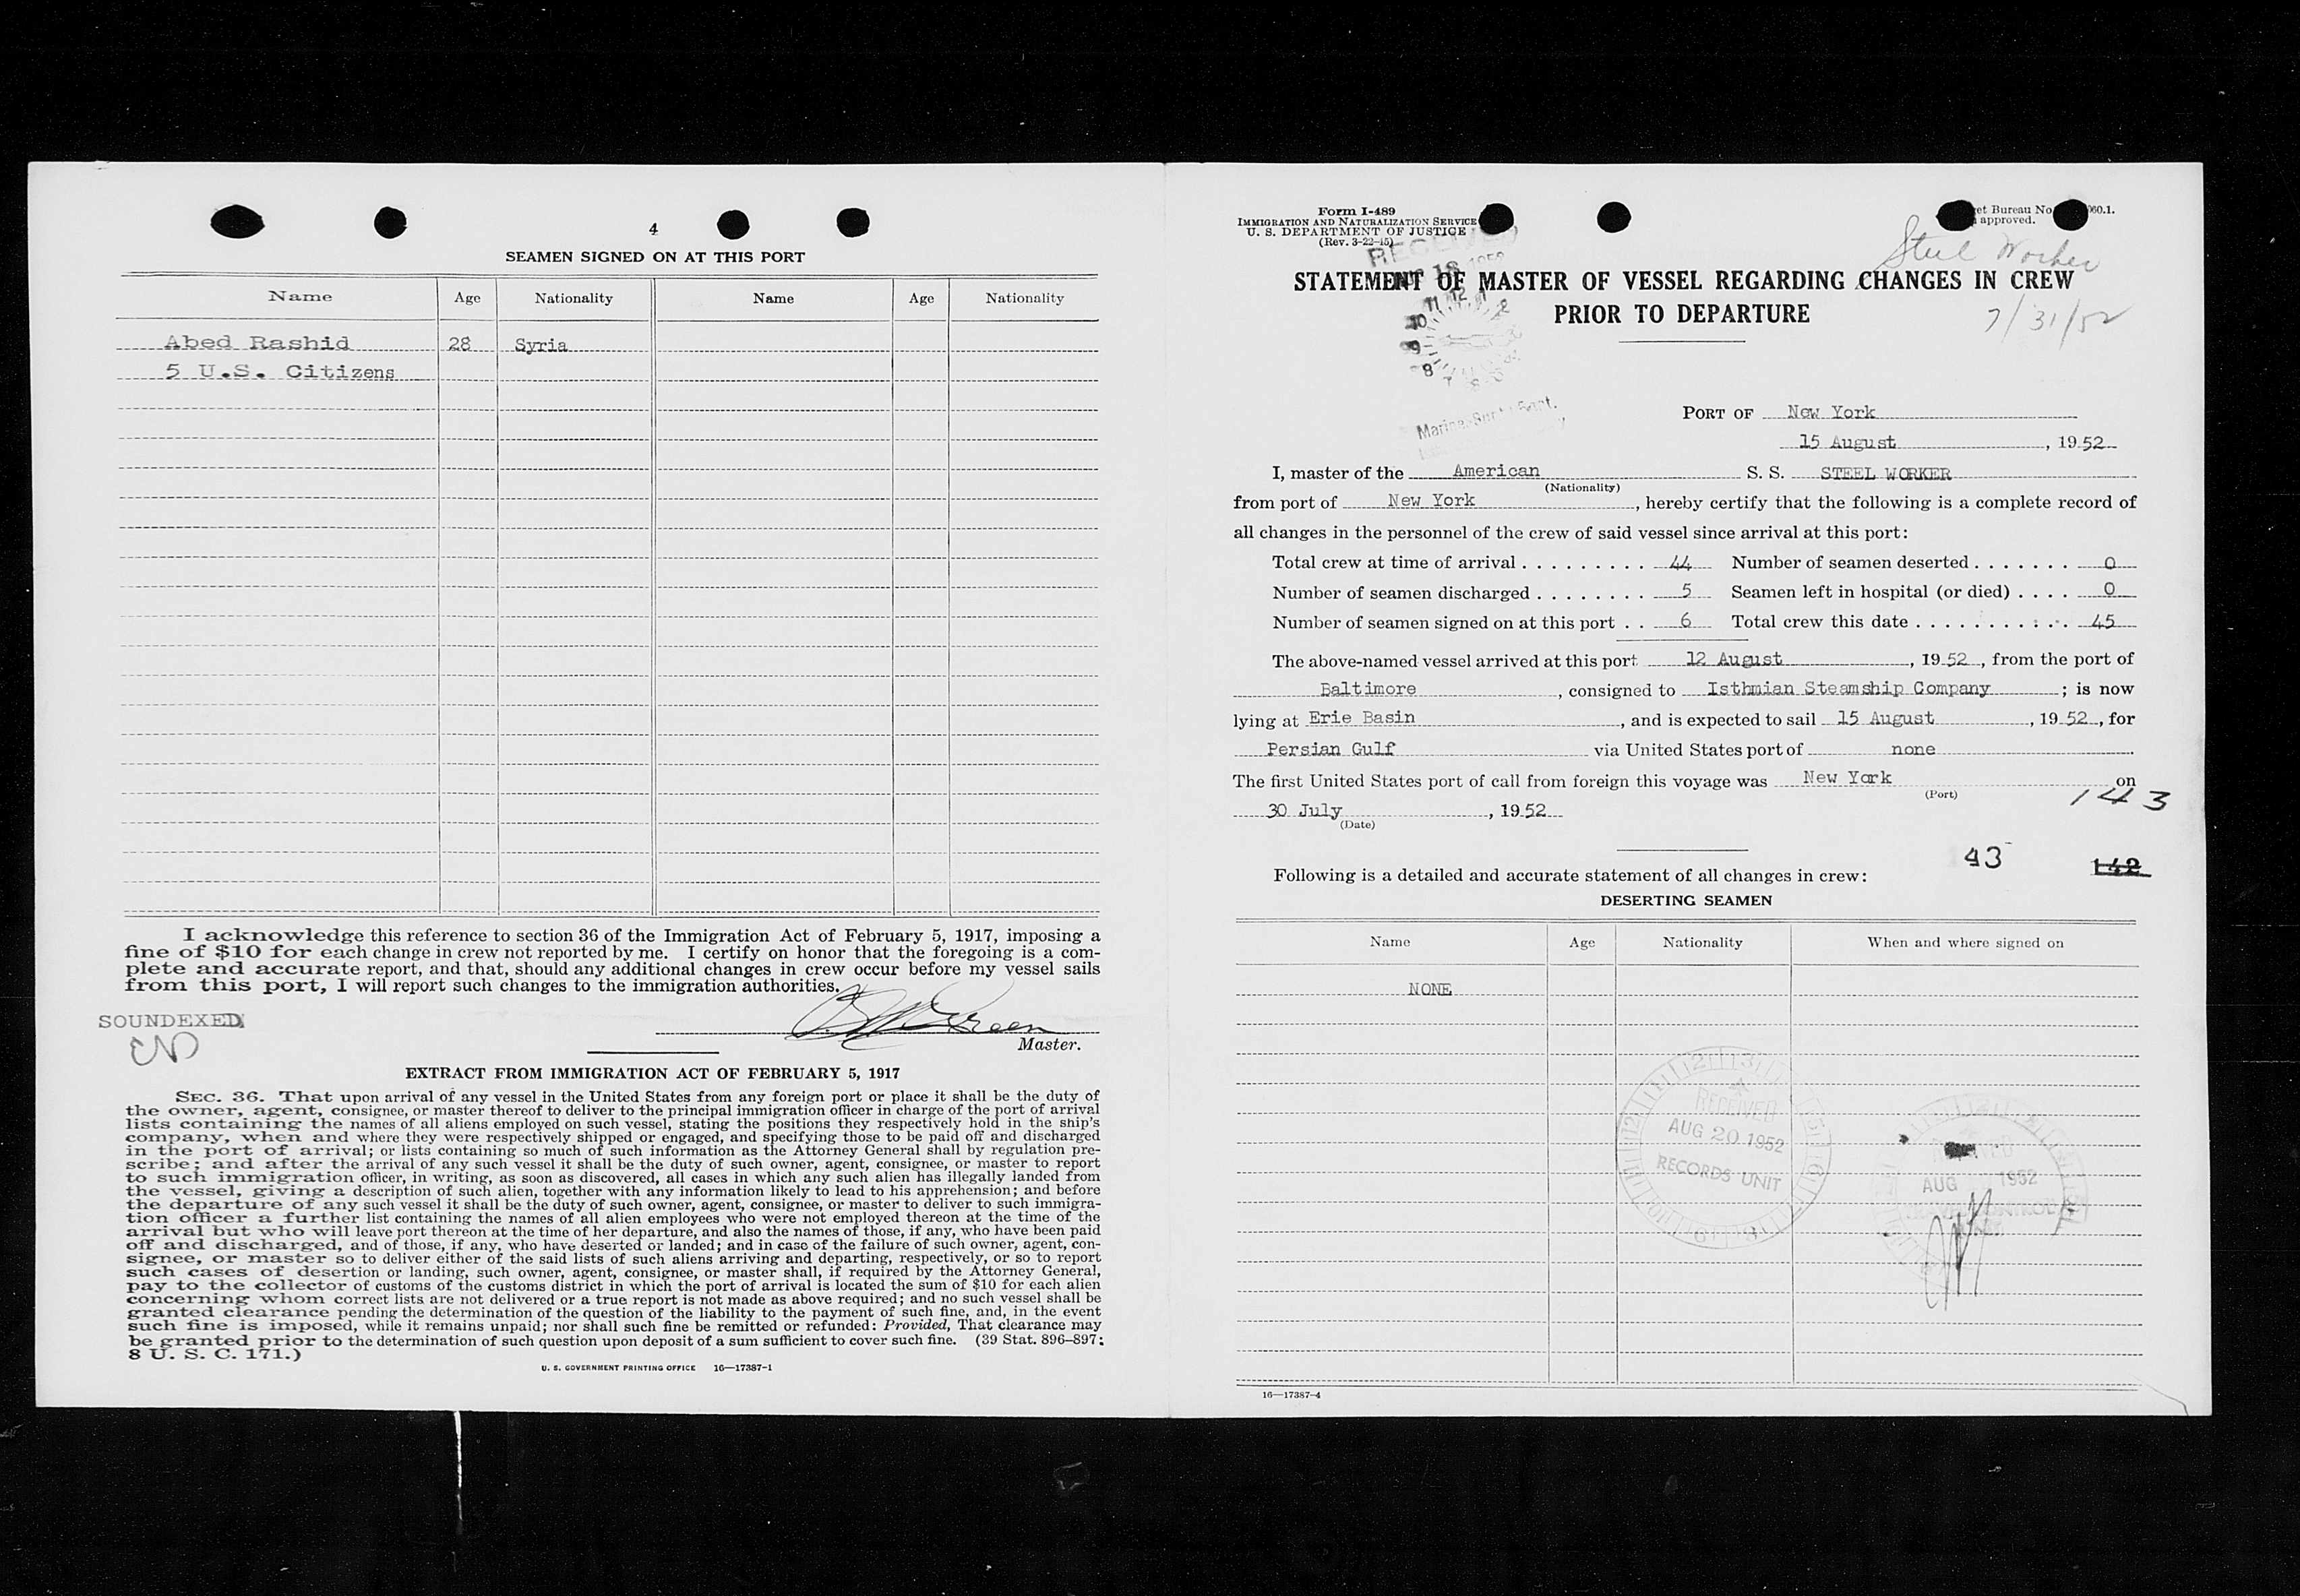 4
SEAMEN SIGNED ON AT THIS PORT
Name Age Nationality Name Age Nationality
Abed Rashid 28 Syria
5 U.S. Citizens
I acknowledge this reference to section 36 of the Immigration Act of February 5, 1917, imposing a
fine of $10 for each change in crew not reported by me. I certify on honor that the foregoing is a com-
plete and accurate report, and that, should any additional changes in crew occur before my vessel sails
from this port, I will report such changes to the immigration authorities.
SOUNDEXED
Master.
EXTRACT FROM IMMIGRATION ACT OF FEBRUARY 5, 1917
SEC. 36. That upon arrival of any vessel in the United States from any foreign port or place it shall be the duty of
the owner, agent, consignee, or master thereof to deliver to the principal immigration officer in charge of the port of arrival
lists containing the names of all aliens employed on such vessel, stating the positions they respectively hold in the ship's
company, when and where they were respectively shipped or engaged, and specifying those to be paid off and discharged
in the port of arrival; or lists containing so much of such information as the Attorney General shall by regulation pre-
scribe; and after the arrival of any such vessel it shall be the duty of such owner, agent, consignee, or master to report
to such immigration officer, in writing, as soon as discovered, all cases in which any such alien has illegally landed from
the vessel, giving a description of such alien, together with any information likely to lead to his apprehension; and before
the departure of any such vessel it shall be the duty of such owner, agent, consignee, or master to deliver to such immigra-
tion officer a further list containing the names of all alien employees who were not employed thereon at the time of the
arrival but who will leave port thereon at the time of her departure, and also the names of those, if any, who have been paid
off and discharged, and of those, if any, who have deserted or landed; and in case of the failure of such owner, agent, con-
signee, or master so to deliver either of the said lists of such aliens arriving and departing, respectively, or so to report
such cases of desertion or landing, such owner, agent, consignee, or master shall, if required by the Attorney General,
pay to the collector of customs of the customs district in which the port of arrival is located the sum of $10 for each alien
concerning whom correct lists are not delivered or a true report is not made as above required; and no such vessel shall be
granted clearance pending the determination of the question of the liability to the payment of such fine, and, in the event
such fine is imposed, while it remains unpaid; nor shall such fine be remitted or refunded: Provided, That clearance may
be granted prior to the determination of such question upon deposit of a sum sufficient to cover such fine. (39 Stat. 896–897;
8 U. S. C. 171.)
U. S. GOVERNMENT PRINTING OFFICE 16—17387-1
Form I-489
IMMIGRATION AND NATURALIZATION SERVICE
U. S. DEPARTMENT OF JUSTICE
(Rev. 3-22-45)
et Bureau No. 060.1.
approved.
RECEIVED
Steel Worker
STATEMENT OF MASTER OF VESSEL REGARDING CHANGES IN CREW
PRIOR TO DEPARTURE
7/31/52
PORT OF New York
15 August, 1952
I, master of the American S. S. STEEL WORKER
(Nationality)
from port of New York, hereby certify that the following is a complete record of
all changes in the personnel of the crew of said vessel since arrival at this port:
Total crew at time of arrival . . . . . . . . . 44 Number of seamen deserted . . . . . . . 0
Number of seamen discharged . . . . . . . . 5 Seamen left in hospital (or died) . . . . 0
Number of seamen signed on at this port . . 6 Total crew this date . . . . . . . . . . . 45
The above-named vessel arrived at this port 12 August, 1952, from the port of
Baltimore, consigned to Isthmian Steamship Company; is now
lying at Erie Basin, and is expected to sail 15 August, 1952, for
Persian Gulf via United States port of none.
The first United States port of call from foreign this voyage was New York on
(Port)
143
30 July, 1952
(Date)
43 142
Following is a detailed and accurate statement of all changes in crew:
DESERTING SEAMEN
Name Age Nationality When and where signed on
NONE
RECEIVED
AUG 20 1952
RECORDS UNIT
AUG 1952
16—17387-4